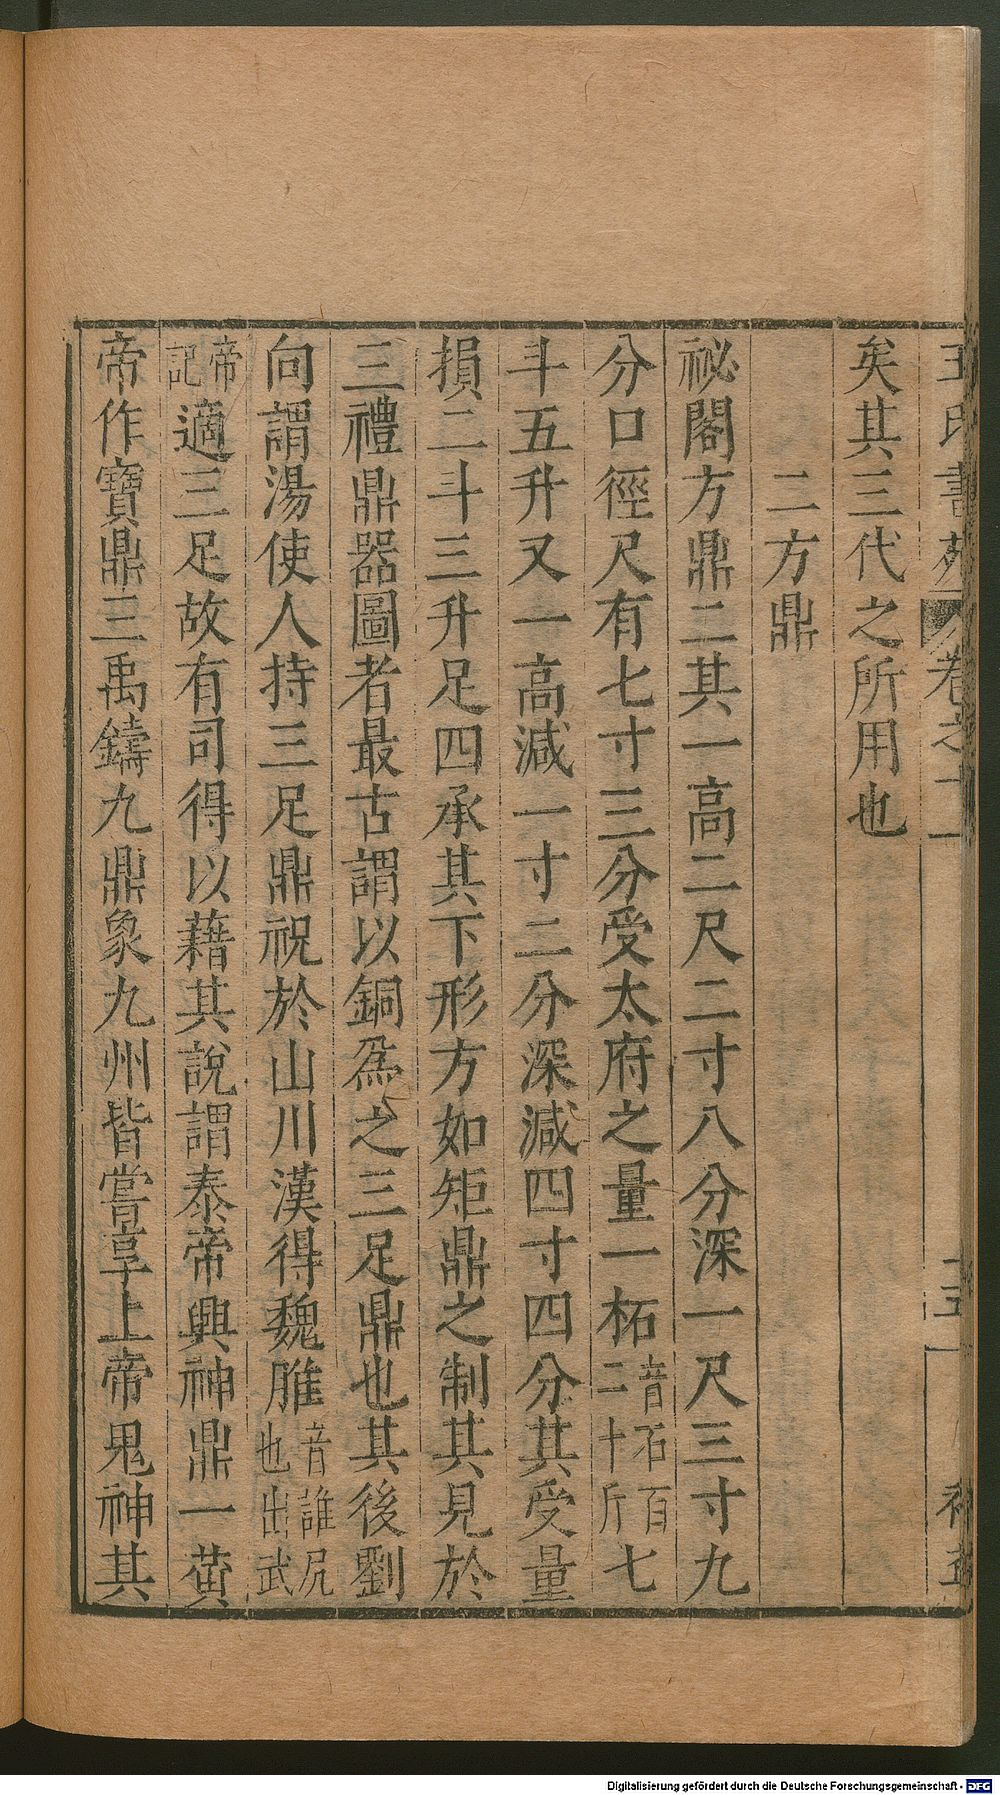 王氏書苑 卷之二 五 補五
矣其三代之所用也
二方鼎
祕閣方鼎二其一高二尺二寸八分深一尺三寸九
分口徑尺有七寸三分受太府之量一柘音石百二十斤七
斗五升又一高減一寸二分深減四寸四分其受量
損二斗三升足四承其下形方如矩鼎之制其見於
三禮鼎器圖者最古謂以銅爲之三足鼎也其後劉
向謂湯使人持三足鼎祝於山川漢得魏脽音誰尻也出武
帝記適三足故有司得以藉其說謂泰帝興神鼎一黄
帝作寶鼎三禹鑄九鼎象九州皆嘗享上帝鬼神其
Digitalisierung gefördert durch die Deutsche Forschungsgemeinschaft - DFG